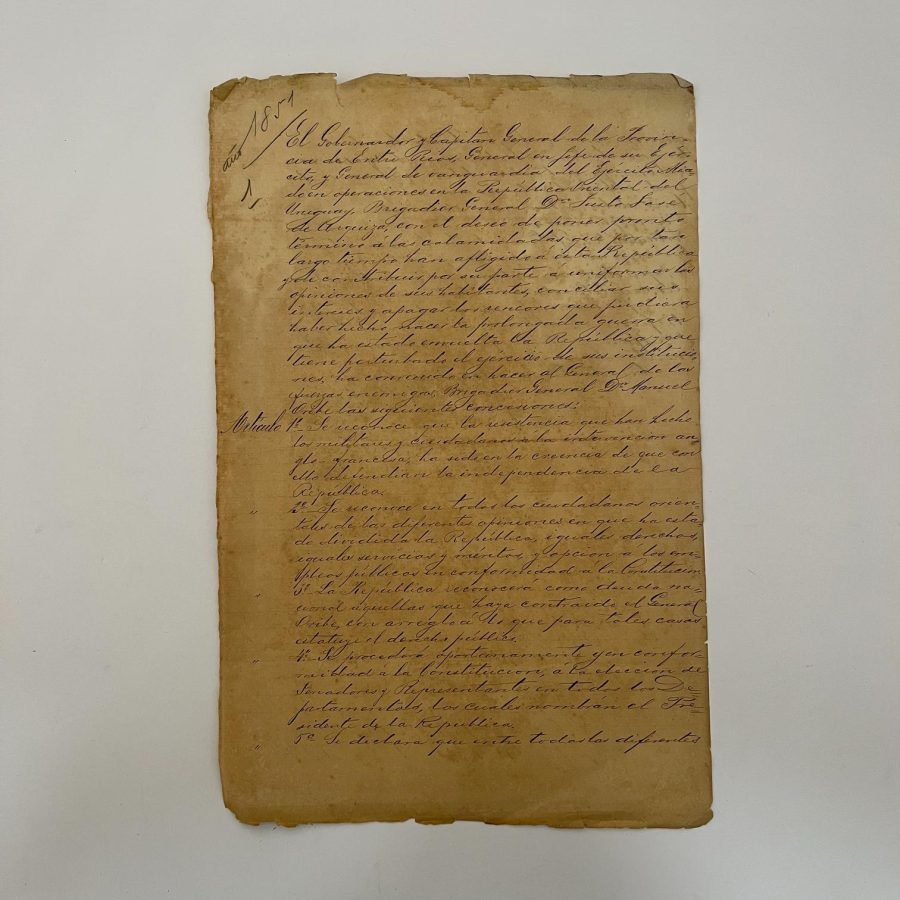 año 1851
1
El Gobernador y Capitan General de la Provin-
cia de Entre Rios, General en Jefe de su Ejer-
cito, y General de vanguardia del Ejercito Alia
do en operaciones en la República Oriental del
Uruguay, Brigadier General Dn. Justo José
de Urquiza, con el deseo de poner pronto
término á las calamidades que por tan
largo tiempo han afligido á esta República
y de contribuir por su parte a uniformar las
opiniones de sus habitantes, conciliar sus
intereses y apagar los rencores que pudiera
haber hecho nacer la prolongada guerra en
que ha estado envuelta la República y que
tiene perturbado el ejercicio de sus institucio
nes, ha convenido en hacer al General de las
fuerzas enemigas, Brigadier General Dn. Manuel
Oribe las siguientes concesiones:
Artículo 1º- Se reconoce que la resistencia que han hecho
los militares y ciudadanos á la intervencion an
glo-francesa, ha sido en la creencia de que con
ello defendian la independencia de la
República.
" 2º- Se reconoce en todos los ciudadanos orien-
tales de las diferentes opiniones en que ha esta
do dividida la República, iguales derechos,
iguales servicios y méritos, y opcion a los em
pleos públicos en conformidad á la Constitucion
" 3º- La República reconocerá como deuda na-
cional aquellas que haya contraido el General
Oribe, con arreglo á lo que para tales casos
estatuye el derecho público.
" 4º- Se procederá oportunamente y en confor
midad á la Constitucion, á la eleccion de
Senadores y Representantes en todos los De-
partamentos, los cuales nombran el Pre-
sidente de la República.
" 5º Se declara que entre todas las diferentes